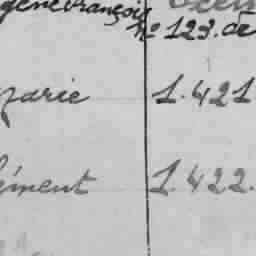 gène François
n° 123. de
marie 1.421
ément 1.422.